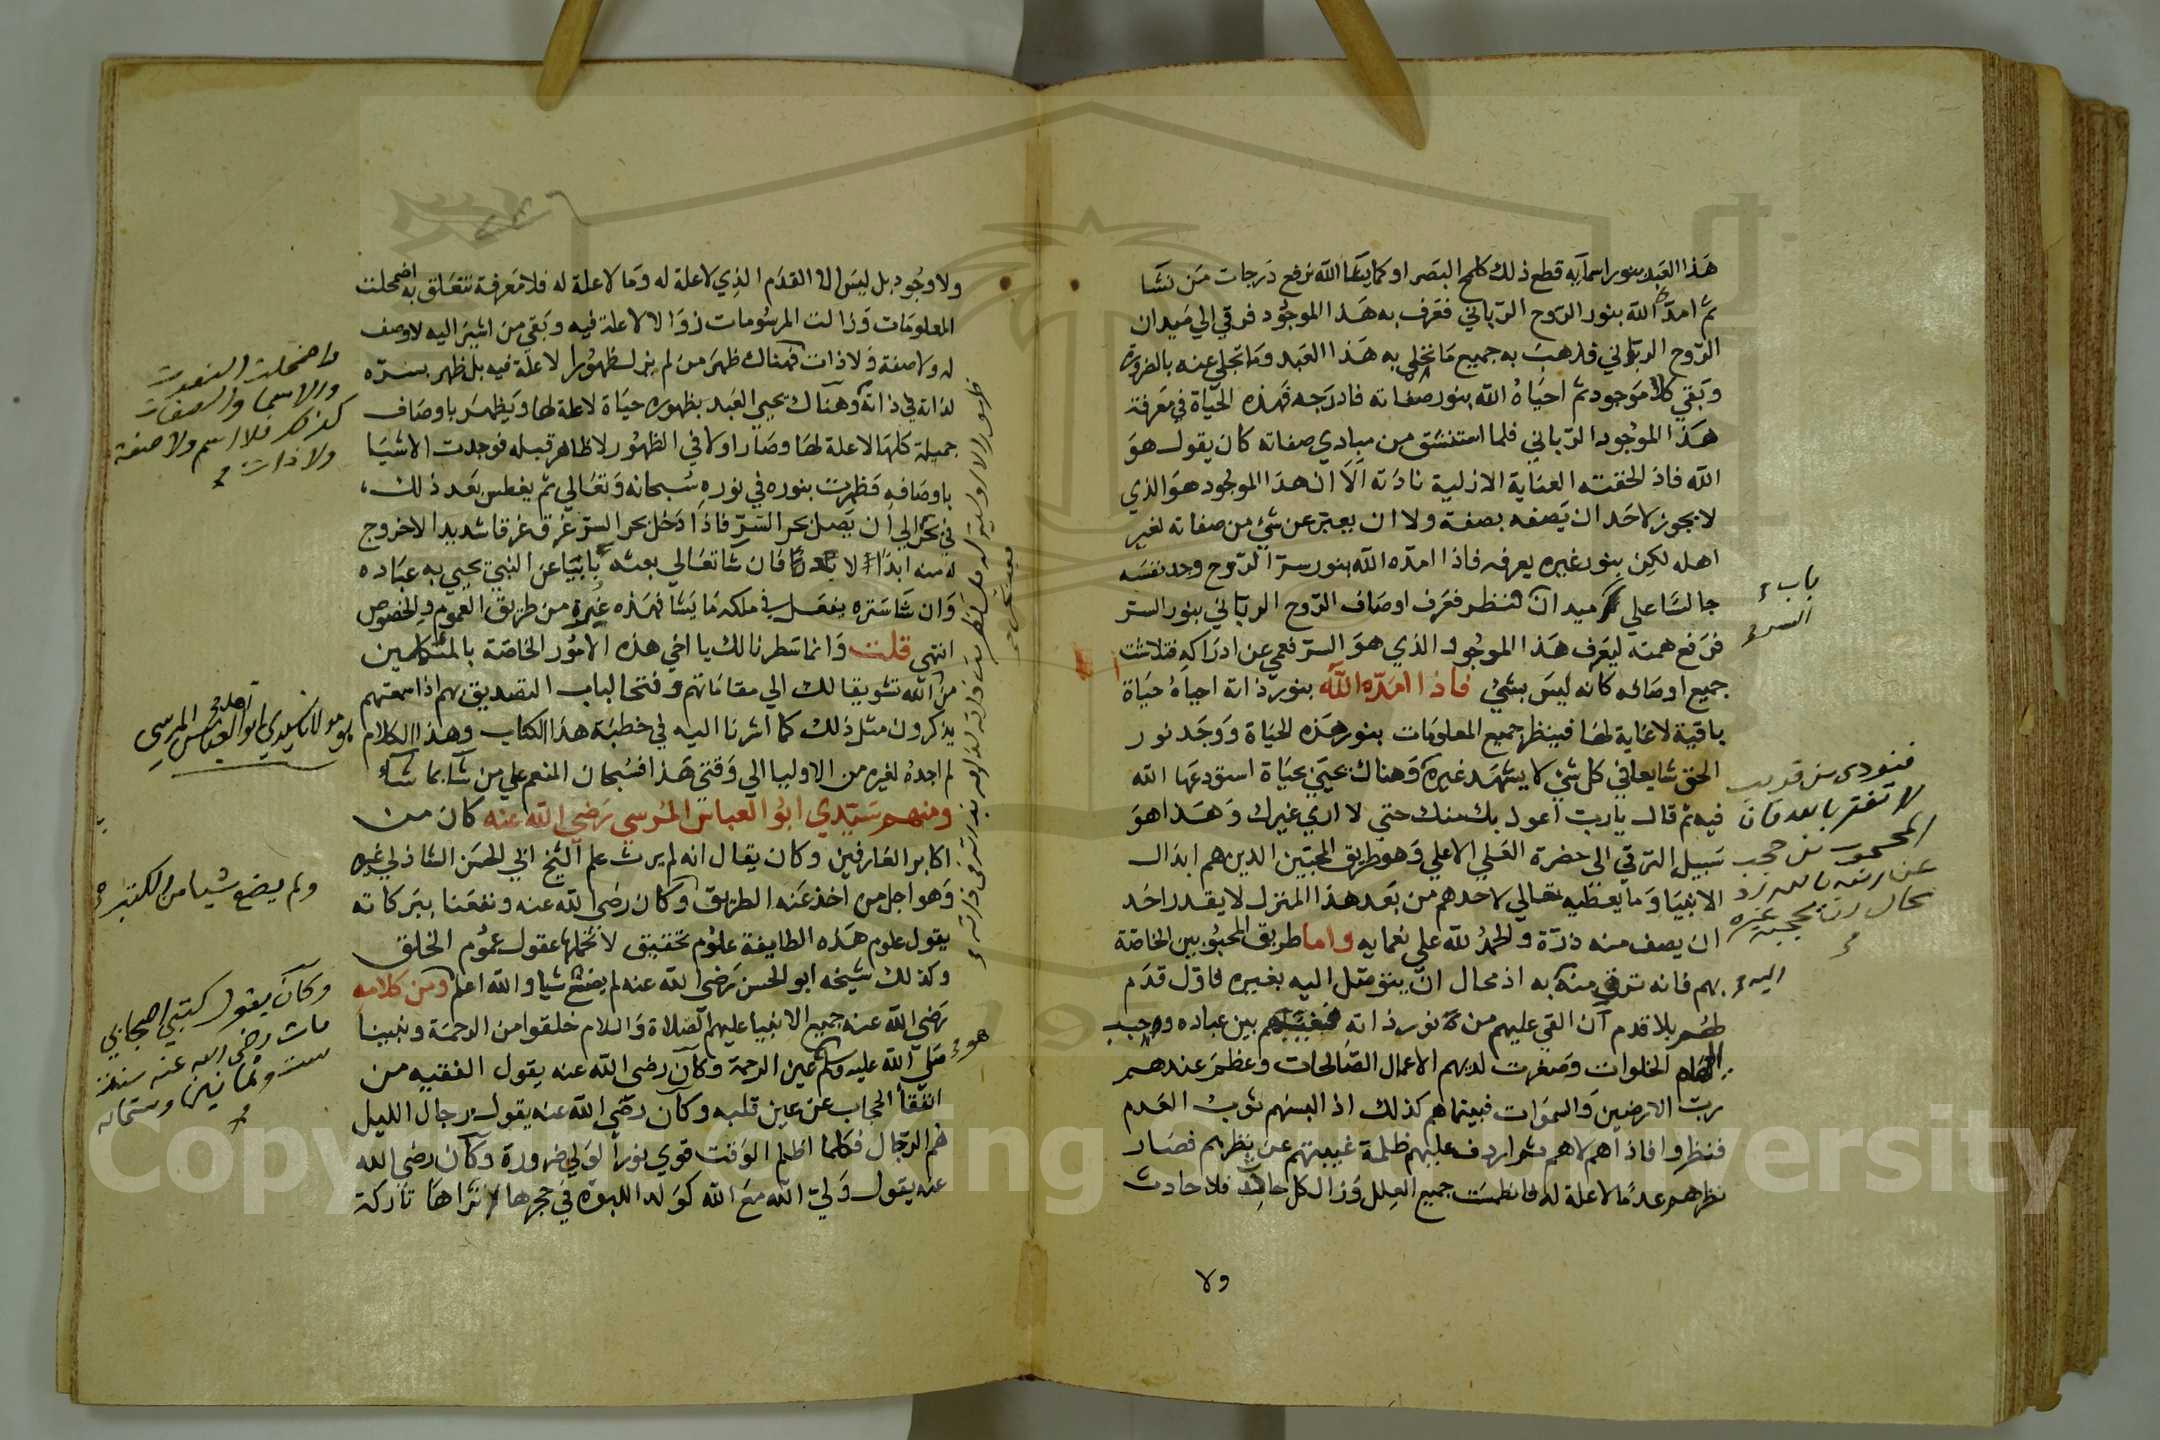 هذا العبد بنور اسمآيه قطع ذلك كلمح البصر او كما يشا الله نرفع درجات من نشا
ثم امده الله بنور الروح الرباني فعرف به هذا الموجود فرقي الي ميدان
الروح الرباني فذهب به جميع ما تحلي به هذا العبد وما تخلي عنه بالضرورة
وبقي كلا موجود ثم احياه الله بنور صفاته فادرجه فهذه الحياة في معرفة
هذا الموجود الرباني فلما استنشق من مبادي صفاته كاد يقول هو
الله فاذ لحقته العناية الازلية نادته الا ان هذا الموجود هو الذي
لا يجوز لاحد ان يصفه بصفة ولا ان يعبر عن شي من صفاته لغير
اهله لكن بنور غيره يعرفه فاذا امده الله بنور سر الروح وجد نفسه
جالسا علي ميدان فنظر فعرف اوصاف الروح الرباني بنور السر
باب
السر
فرفع همته ليعرف هذا الموجود الذي هو السر فعمي عن ادراكه فتلاشت
جميع اوصافه كانه ليس بشي فاذا امده الله بنور ذاته احياه حياة
باقية لا غاية لها فينظر جميع المعلومات بنور هذه الحياة ووجد نور
الحق شايعا في كل شي لا يشهد غيره وهناك يحيى بحياة استودعها الله
فيه ثم قال يارب اعوذ بك منك حتي لا اري غيرك وهذا هو
سبيل الترقي الي حضرة العلي الاعلي وهو طريق المحبين الذين هم ابدال
الانبيا وما يعطيه تعالي لاحدهم من بعد هذا المنزل لا يقدر احد
ان يصف منه ذرة والحمد لله علي نعمايه واما طريق المحبوبين الخاصة
فنودى من قريب
لا تغتر بالله فان
المحجوب من حجب
عن الله بالله
اليه
بهم فانه ترقي منه به اذ محال ان يتوصل اليه بغيره فاول قدم
لهم بلا قدم ان القي عليهم من نور ذاته فغيبهم بين عباده وحبب
اليهم الخلوات وصغرت لديهم الاعمال الصالحات وعظم عندهم
رب الارضين والسموات فبينما هم كذلك اذ البسهم ثوب العدم
فنظروا فاذا هم لا هم ثم اردف عليهم ظلمة غيبتهم عن نظرهم فصار
نظرهم عدما لا علة له فانطمست جميع العلل وزال كل حادث فلا حادث
ولا
ولا وجود بل ليس الا القدم الذي لا علة له وما لا علة له فلا معرفة تتعلق به اضمحلت
المعلومات وزالت المرسومات زوالا لا علة فيه وبقي من اشير اليه لا وصف
له ولا صفة ولا ذات فهناك ظهر من لم يزل ظهورا لا علة فيه بل ظهر بسره
لذاته في ذاته وهناك يحيي العبد بظهوره حياة لا علة لها ويظهر باوصاف
جميلة كلها لا علة لها وصار اولا في الظهور لا ظاهر قبله فوجدت الاشيا
واضمحلت النعوت
والاسما والصفات
كذلك فلا اسم ولا صفة
ولا ذات
باوصافه فظهرت بنوره في نوره سبحانه وتعالي ثم يغطس بعد ذلك
في بحر الي ان يصل بحر السر فاذا دخل بحر السر غرق غرقا شديدا لا خروج
له منه ابدا فان شا تعالي بعثه نايبا عن النبي يحيي به عباده
وان شا ستره يفعل في ملكه ما يشا فهذه عبرة من طريق العموم والخصوص
انتهى قلت وانما سطرنا لك يا اخي هذه الامور الخاصة بالمتكاملين
من اهل الله تشويقا لك الي مقاماتهم وفتحا لباب التصديق بهم اذا سمعتهم
يذكرون مثل ذلك كما اشرنا اليه في خطبة هذا الكتاب وهذا الكلام
لم اجده لغيره من الاوليا الي وقتي هذا فسبحان المنعم علي من شآ بما شآء
ومنهم سيدي ابو العباس المرسي رضي الله عنه كان من
اكابر العارفين وكان يقال انه لم يرث علم الشيخ ابي الحسن الشاذلي غيره
وهو اجل من اخذ عنه الطريق وكان رضي الله عنه ونفعنا ببركاته
ولم يضع شيا من الكتب
يقول علوم هذه الطايفة علوم تحقيق لا تحملها عقول عموم الخلق
وكذلك شيخه ابو الحسن رضي الله عنه لم يضع شيا والله اعلم ومن كلامه
وكان يقول كتبي اصحابي
مات رضي الله عنه سنة
ست وثمانين وستمائه
رضي الله عنه جميع الانبيا عليهم الصلاة والسلام خلقوا من الرحمة ونبينا
صلي الله عليه وسلم هو عين الرحمة وكان رضي الله عنه يقول الفقيه من
انفقأ الحجاب عن عين قلبه وكان رضي الله عنه يقول رجال الليل
هم الرجال فكلما اظلم الوقت قوي نور الولي ضرورة وكان رضي الله
عنه يقول ولي الله مع الله كولد اللبوة في حجرها اتراها تاركة